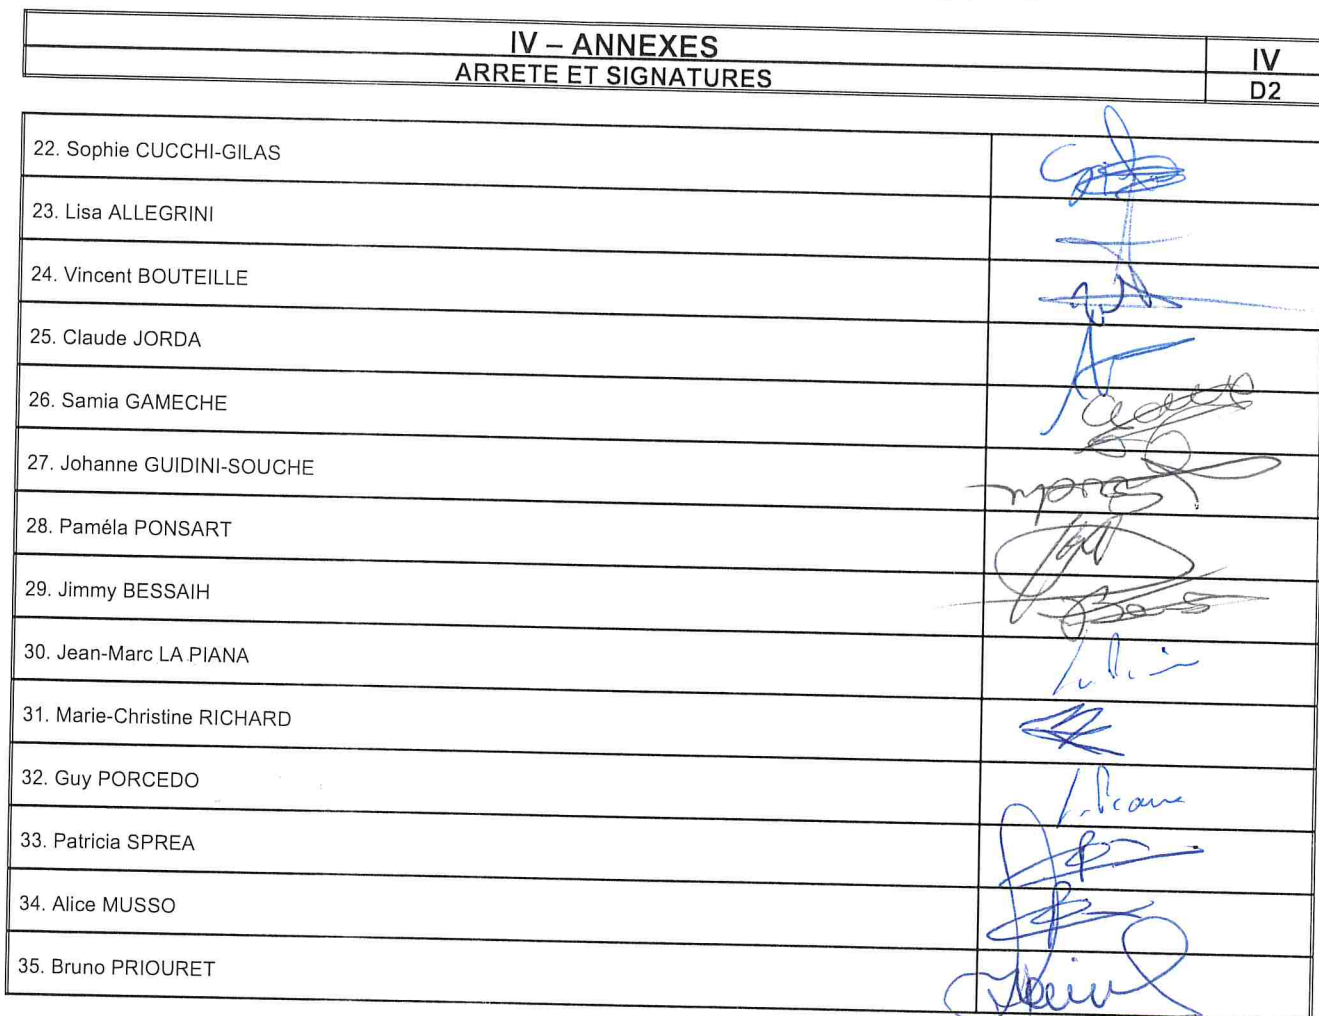 IV – ANNEXES
IV
ARRETE ET SIGNATURES
D2
22. Sophie CUCCHI-GILAS
23. Lisa ALLEGRINI
24. Vincent BOUTEILLE
25. Claude JORDA
26. Samia GAMECHE
27. Johanne GUIDINI-SOUCHE
28. Paméla PONSART
29. Jimmy BESSAIH
30. Jean-Marc LA PIANA
31. Marie-Christine RICHARD
32. Guy PORCEDO
33. Patricia SPREA
34. Alice MUSSO
35. Bruno PRIOURET